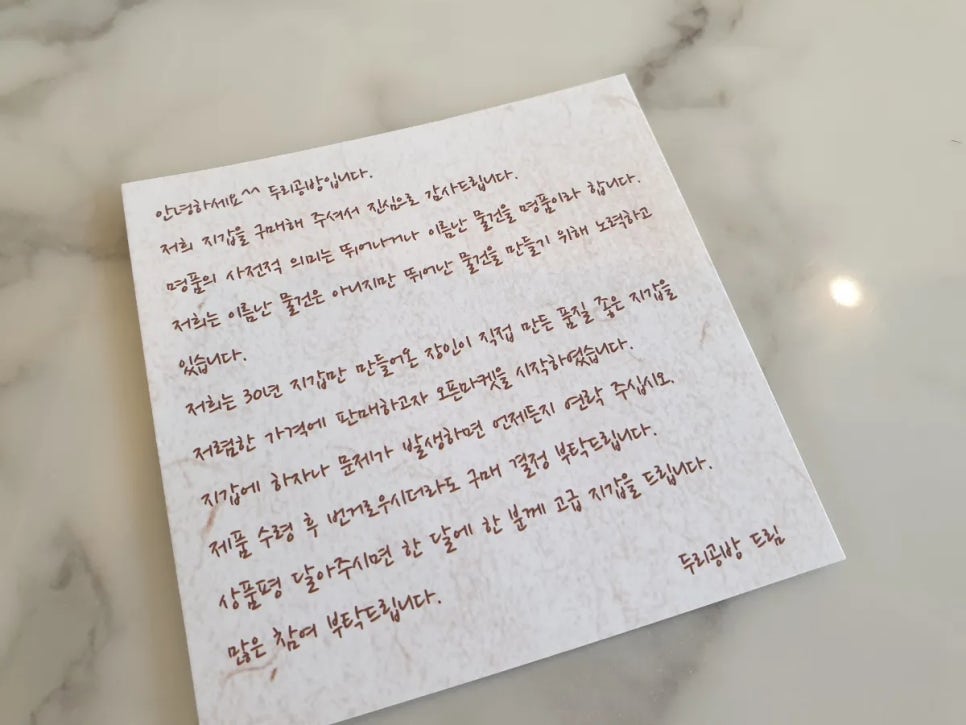 안녕하세요^^ 두리공방입니다.
저희 지갑을 구매해 주셔서 진심으로 감사드립니다.
명품의 사전적 의미는 뛰어나거나 이름난 물건을 명품이라 합니다.
저희는 이름난 물건은 아니지만 뛰어난 물건을 만들기 위해 노력하고
있습니다.
저희는 30년 지갑만 만들어온 장인이 직접 만든 품질 좋은 지갑을
저렴한 가격에 판매하고자 오픈마켓을 시작하였습니다.
지갑에 하자나 문제가 발생하면 언제든지 연락 주십시오.
제품 수령 후 번거로우시더라도 구매 결정 부탁드립니다.
상품평 달아주시면 한 달에 한 분께 고급 지갑을 드립니다.
많은 참여 부탁드립니다.
두리공방 드림